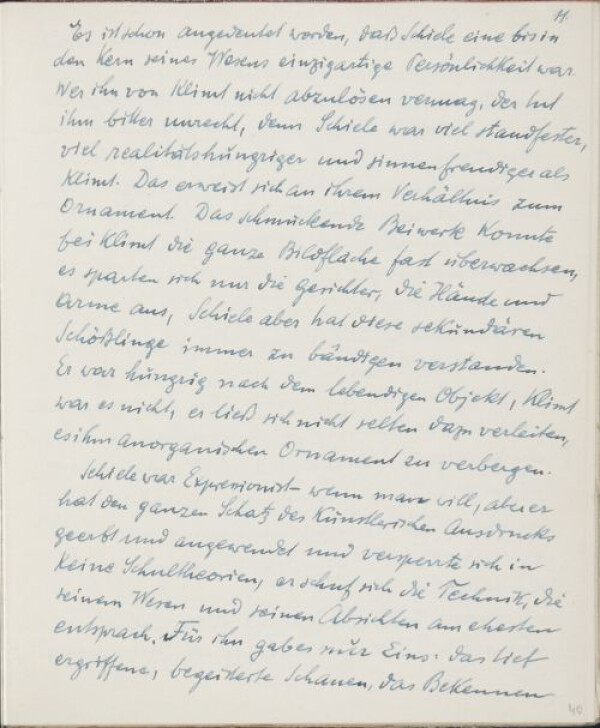 11.
Es ist schon angedeutet worden, daß Schiele eine bis in
den Kern seines Wesens einzigartige Persönlichkeit war
Wer ihn von Klimt nicht abzulösen vermag, der tut
ihm bitter unrecht, denn Schiele war viel standfester,
viel realitätshungriger und sinnenfreudiger als
Klimt. Das erweist sich an ihrem Verhältnis zum
Ornament. Das schmückende Beiwerk konnte
bei Klimt die ganze Bildfläche fast überwachsen,
es sparten sich nur die Gesichter, die Hände und
Arme aus, Schiele aber hat diese sekundären
Schößlinge immer zu bändigen verstanden.
Er war hungrig nach dem lebendigen Objekt, Klimt
war es nicht, er ließ sich nicht selten dazu verleiten,
es ihm anorganischen Ornament zu verbergen.
Schiele war Expressionist – wenn man will, aber er
hat den ganzen Schatz des künstlerischen Ausdrucks
geerbt und angewendet und versperrte sich in
keine Schultheorien, er schuf sich die Technik, die
seinem Wesen und seinen Absichten am ehesten
entsprach. Für ihn gab es nur Eins: das tief
ergriffene, begeisterte Schauen, das Bekennen
40